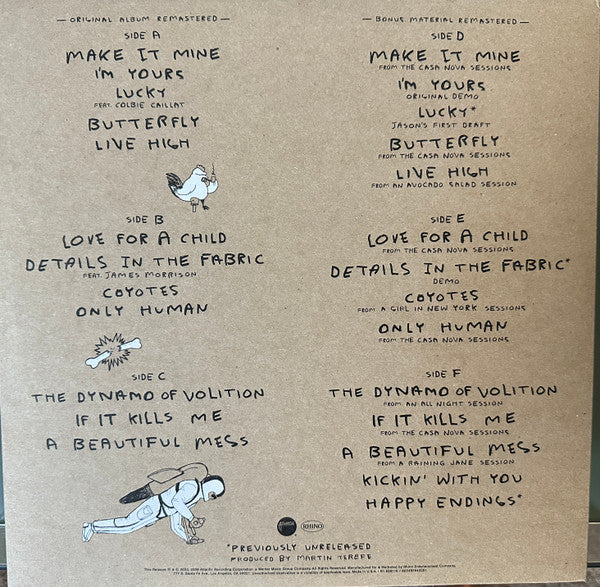 — ORIGINAL ALBUM REMASTERED —
SIDE A
MAKE IT MINE
I'M YOURS
LUCKY
FEAT. COLBIE CAILLAT
BUTTERFLY
LIVE HIGH
SIDE B
LOVE FOR A CHILD
DETAILS IN THE FABRIC
FEAT. JAMES MORRISON
COYOTES
ONLY HUMAN
SIDE C
THE DYNAMO OF VOLITION
IF IT KILLS ME
A BEAUTIFUL MESS
— BONUS MATERIAL REMASTERED —
SIDE D
MAKE IT MINE
FROM THE CASA NOVA SESSIONS
I'M YOURS
ORIGINAL DEMO
LUCKY*
JASON'S FIRST DRAFT
BUTTERFLY
FROM THE CASA NOVA SESSIONS
LIVE HIGH
FROM AN AVOCADO SALAD SESSION
SIDE E
LOVE FOR A CHILD
FROM THE CASA NOVA SESSIONS
DETAILS IN THE FABRIC*
DEMO
COYOTES
FROM A GIRL IN NEW YORK SESSIONS
ONLY HUMAN
FROM THE CASA NOVA SESSIONS
SIDE F
THE DYNAMO OF VOLITION
FROM AN ALL NIGHT SESSION
IF IT KILLS ME
FROM THE CASA NOVA SESSIONS
A BEAUTIFUL MESS
FROM A RAINING JANE SESSION
KICKIN' WITH YOU
HAPPY ENDINGS*
RHINO
*PREVIOUSLY UNRELEASED
PRODUCED BY MARTIN TEREFE